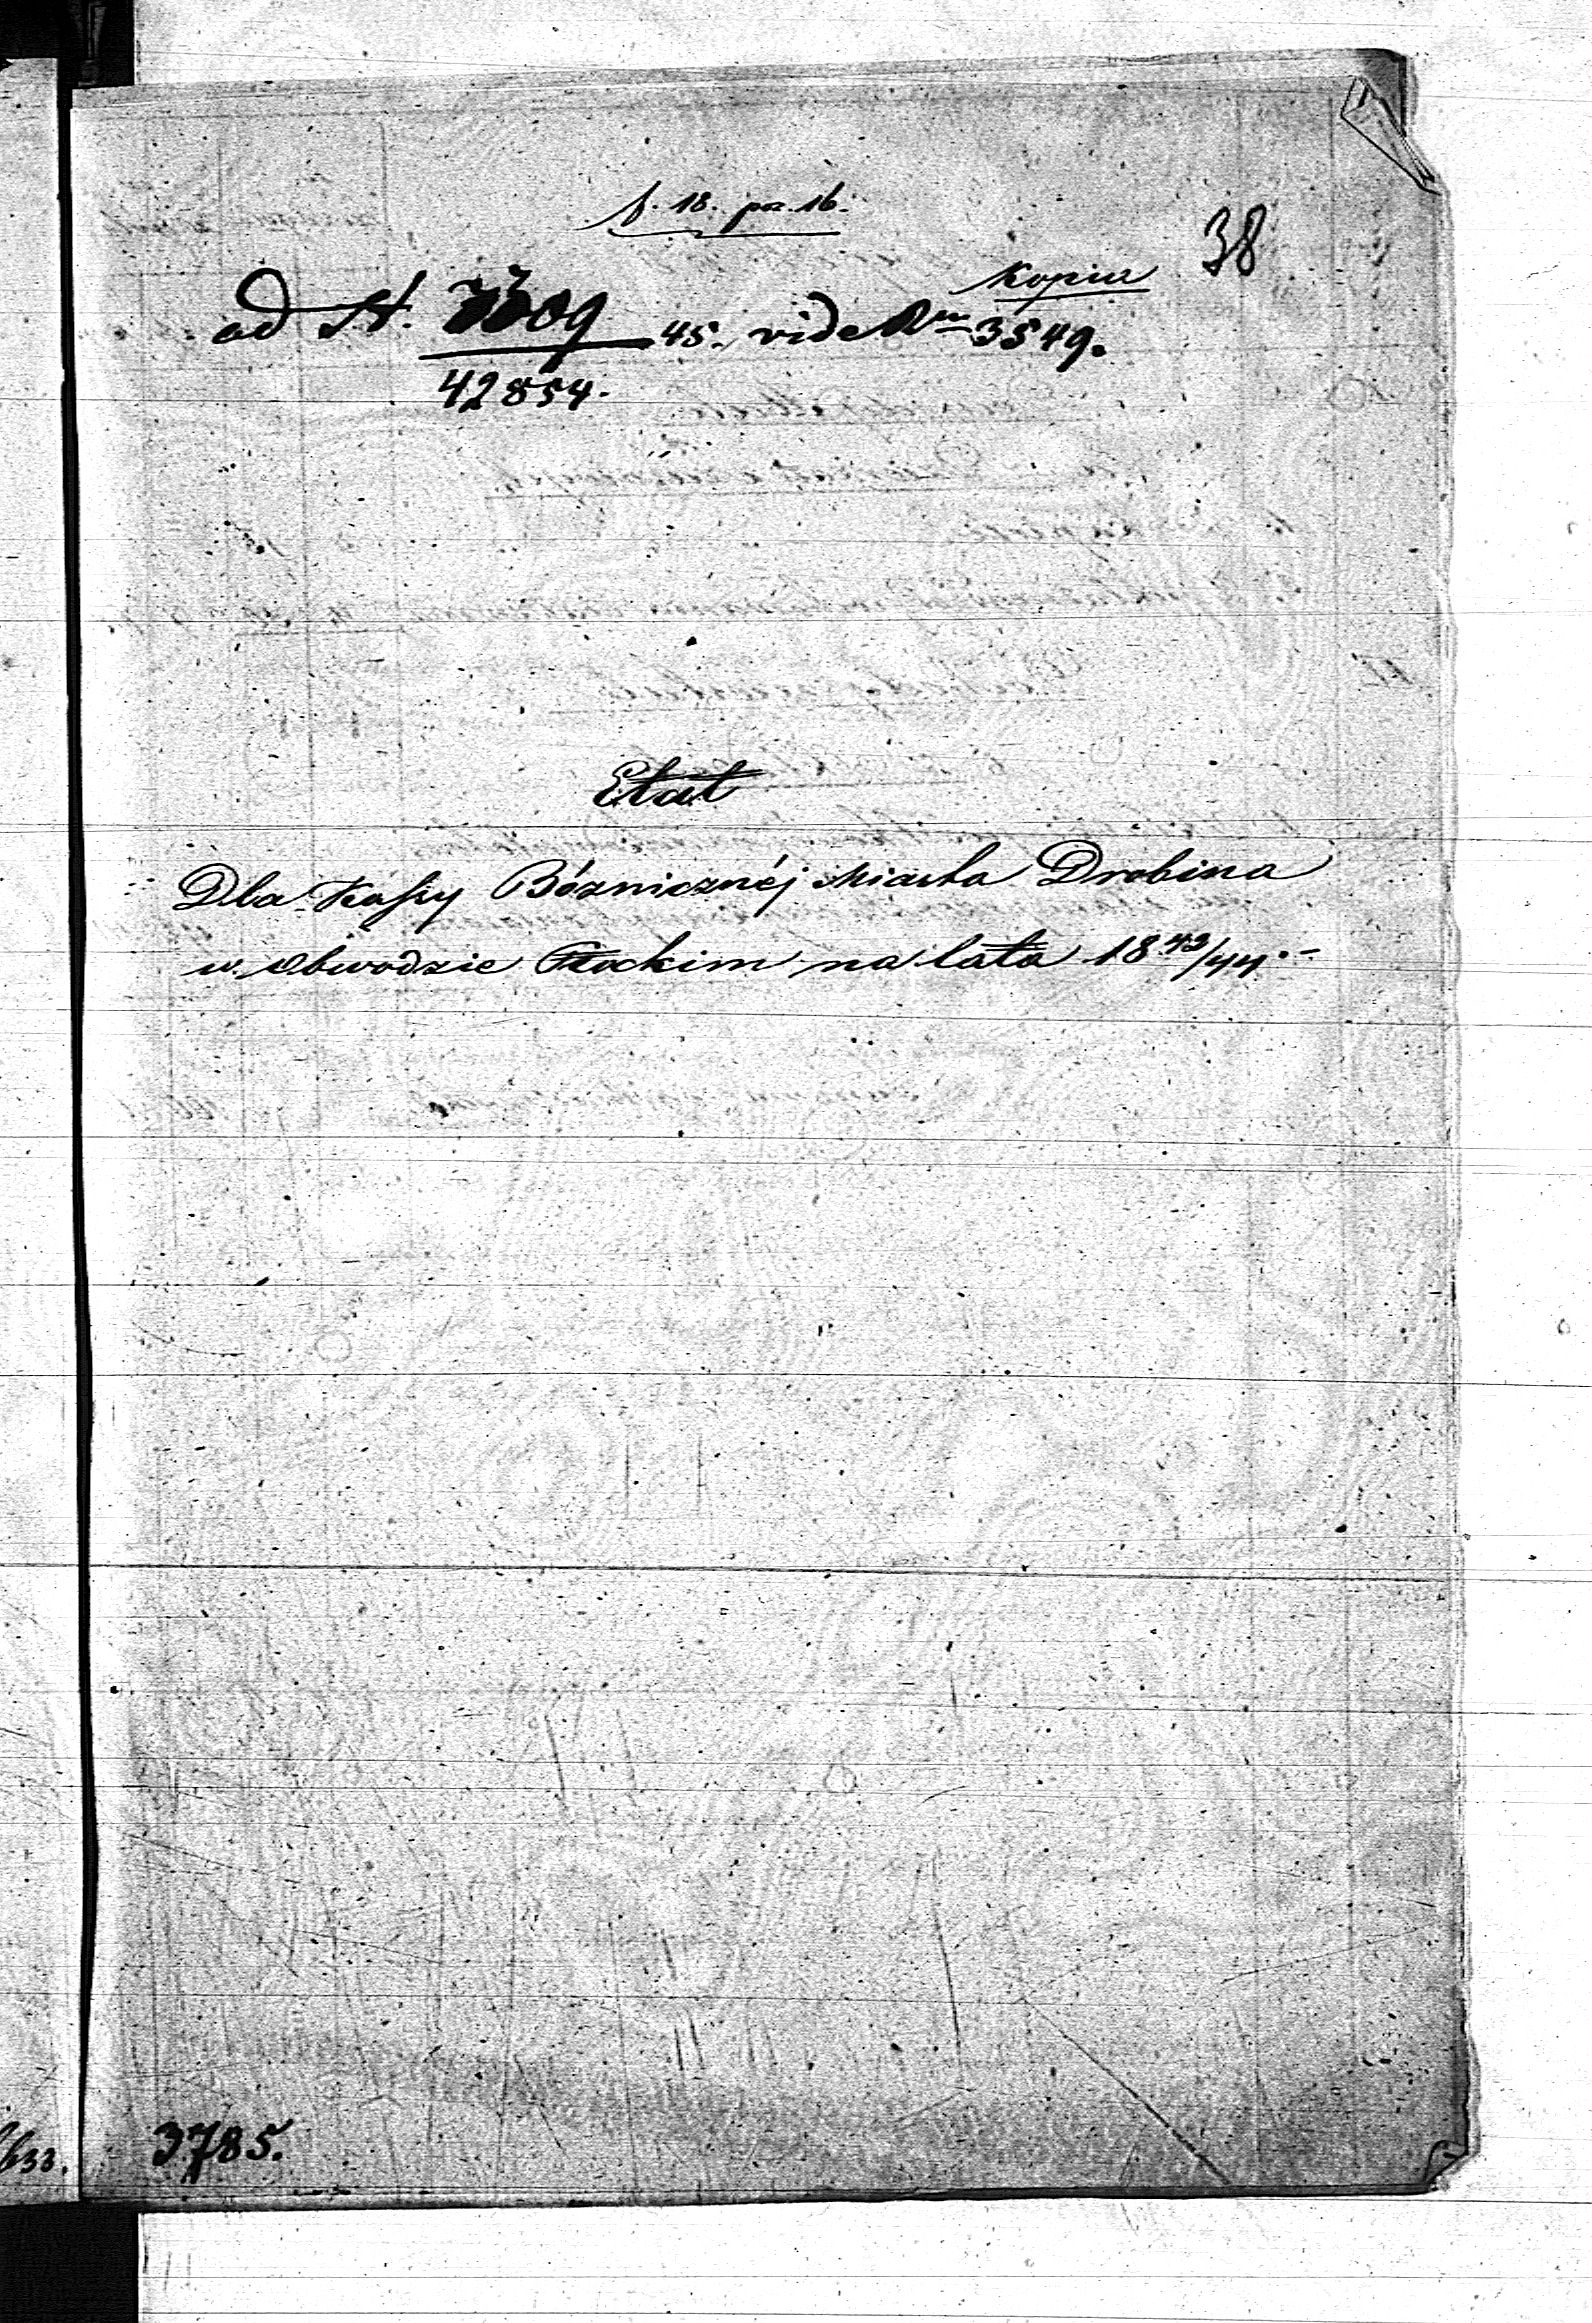 f. 18. poz. 16.
38
Kopia
ad N. 7309 45. vide Num 3549.
42854.
Etat
Dla Kassy Bóżnicznéj Miasta Drobina
w Obwodzie Płockim na lata 1842/44.
3785.